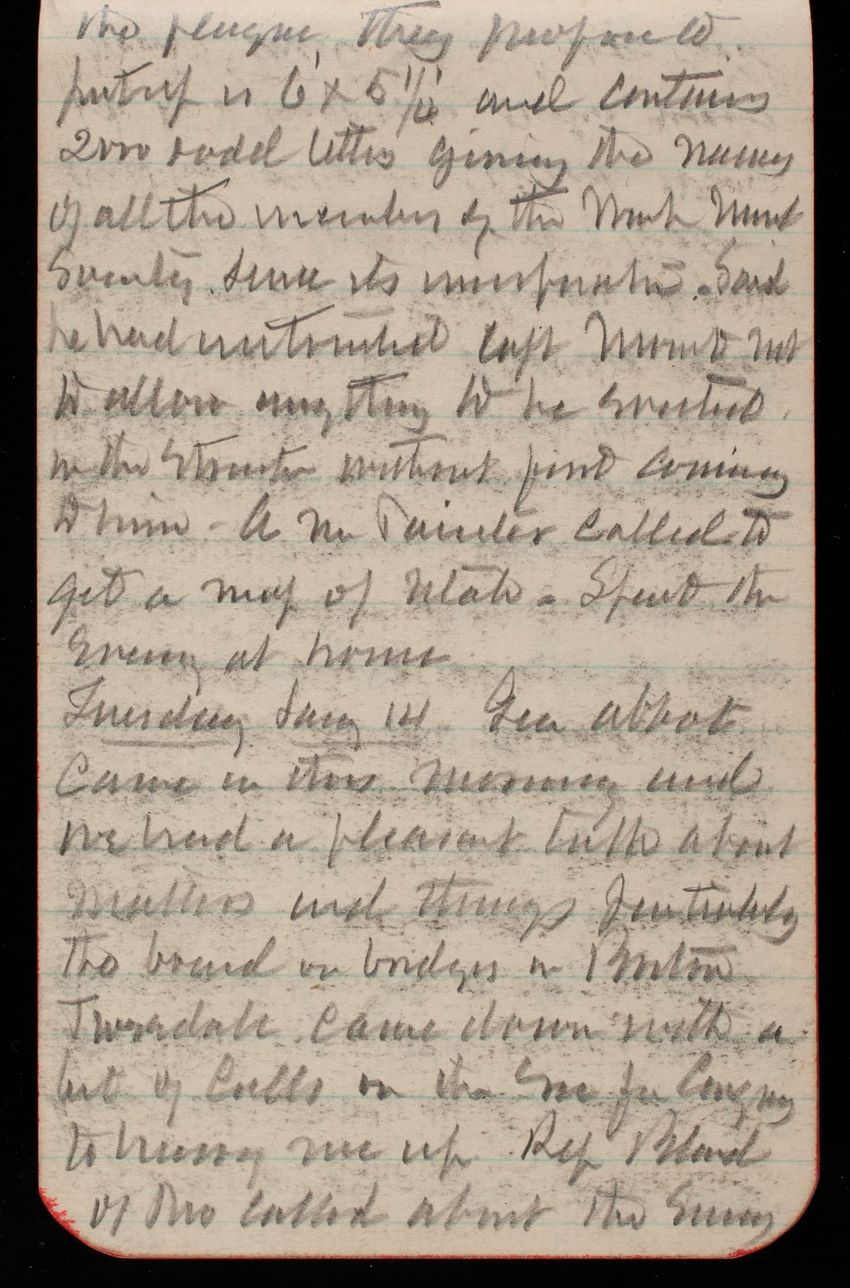 the plaque they propose to
put up is 6' x 5 1/4' and contains
2000 odd letters giving the names
of all the members of the Wash Monut
Society since its incorporatn. Said
he had instructed Capt Momt not
to allow anything to be erected
in the structe without first coming
to him - A Mr Tainter called to
get a map of Utah - Spent the
Evening at home
Tuesday Jany 14 Gen Abbot
Came in this morning and
we had a pleasant talk about
matters and things particularly
the board on bridges in Boston
Tweedale came down with a
lot of calls on the for
to hurry me up Rep Bland
of Mo called about the